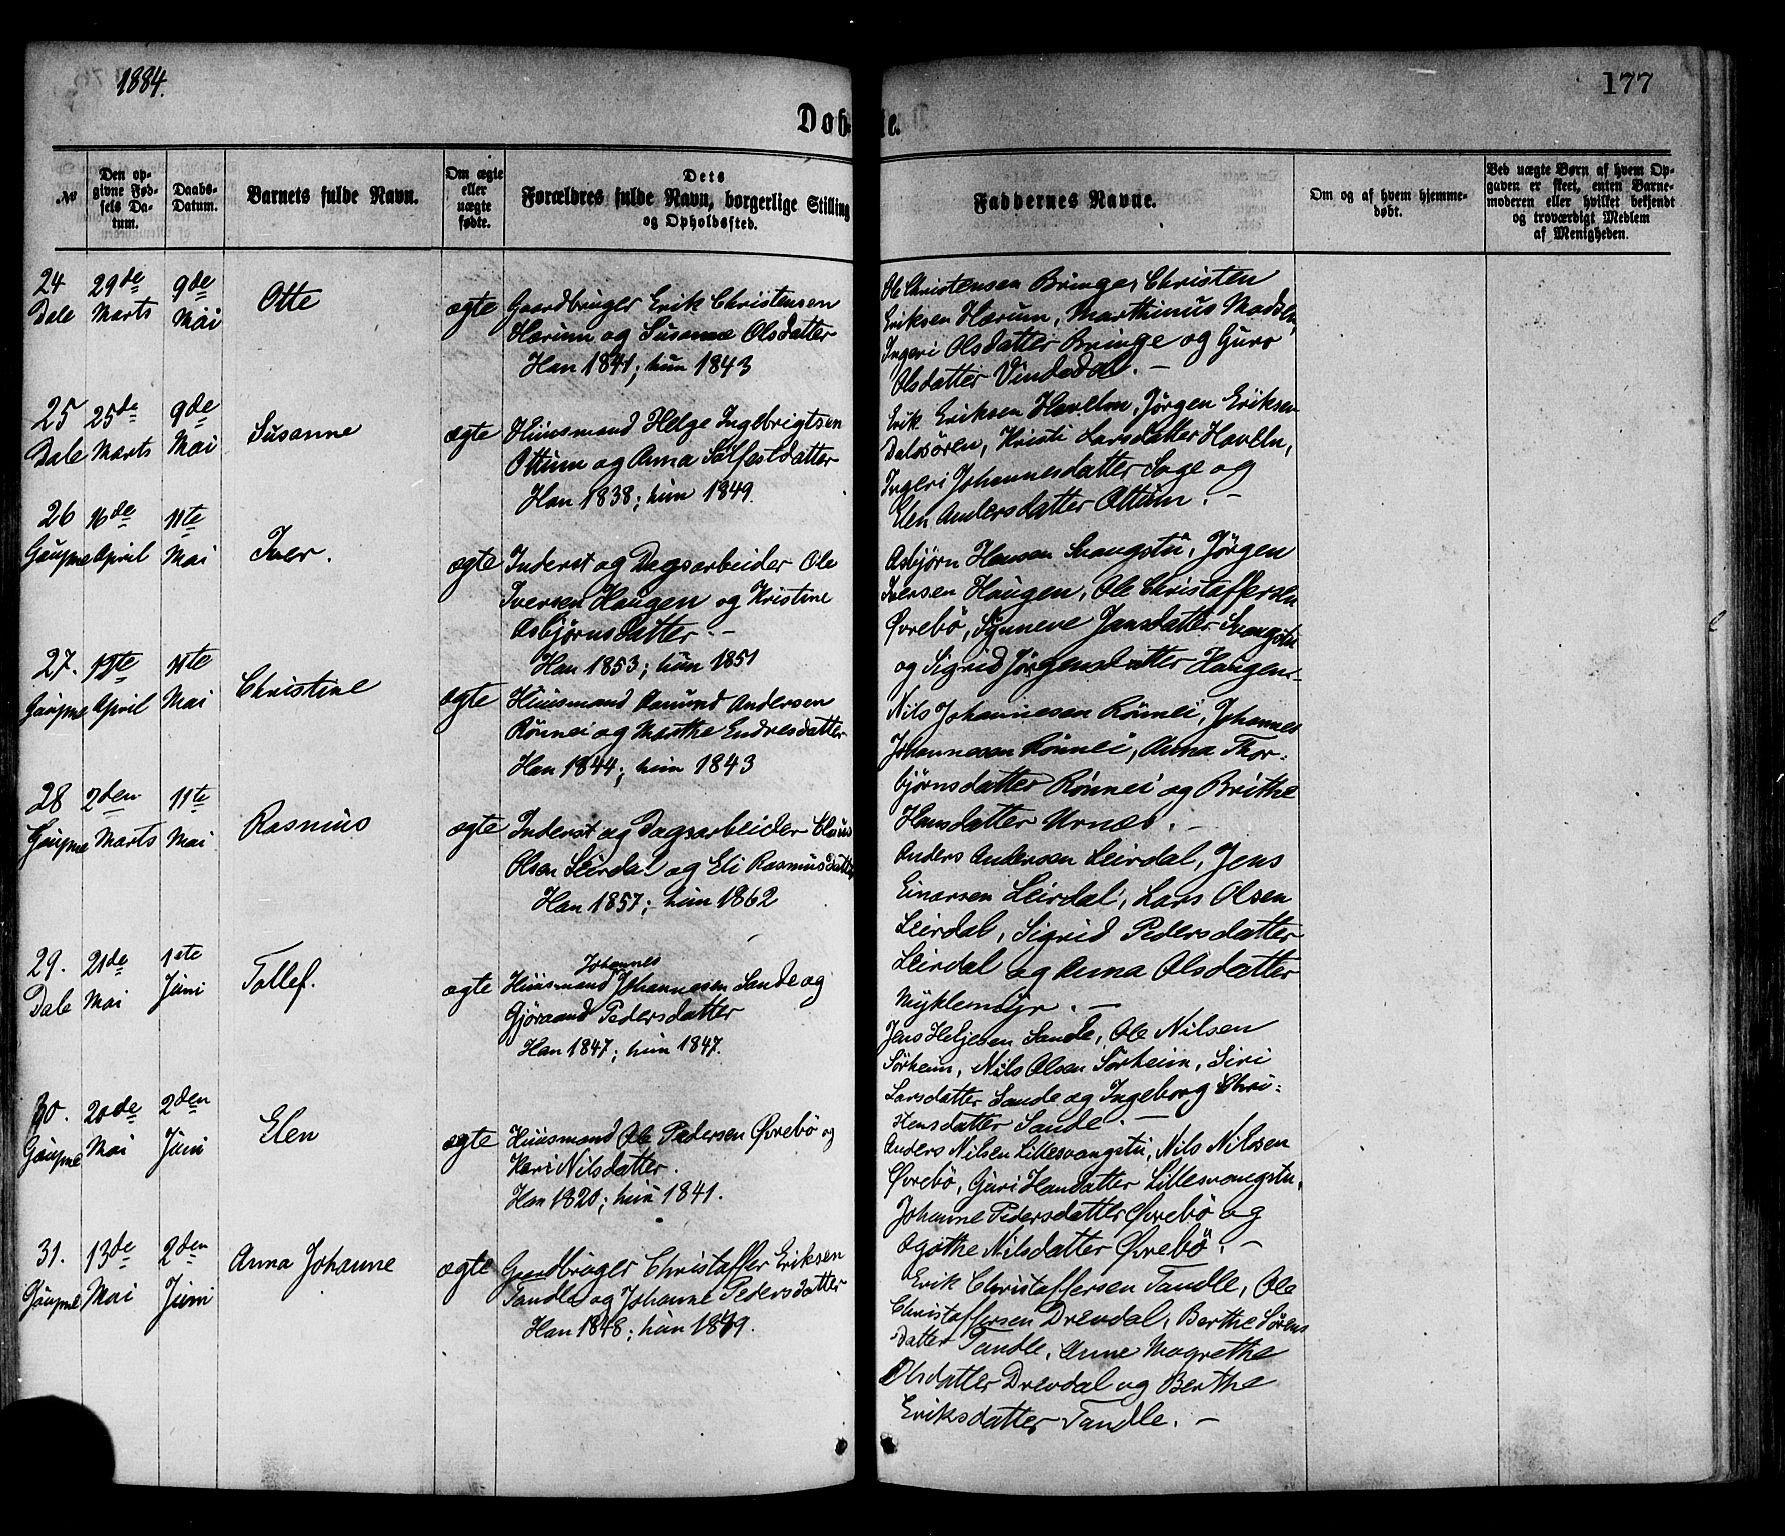 1884.
177
Døbte.
№
Den opgivne Fødsels Datum.
Daabs-Datum.
Barnets fulde Navn.
Om ægte eller uægte fødte.
Dets Forældres fulde Navn, borgerlige Stilling og Opholdssted.
Faddernes Navne.
Om og af hvem hjemmedøbt.
Ved uægte Børn af hvem Opgaven er skeet, enten Barnemoderen eller hvilket bekjendt og troværdigt Medlem af Menigheden.
24 Dale
29de Marts
9de Mai
Otte
ægte
Gaardbruger Erik Christensen
Hærum og Susanne Olsdatter
Han 1841; hun 1843
Ole Christensen Bringe, Christen
Eriksen Hærum, Marthinus Madsen,
Ingeri Olsdatter Bringe og Guro
Olsdatter Vindedal. —
25 Dale
25de Marts
9de Mai
Susanne
ægte
Huusmand Helge Ingebrigtsen
Ottum og Anna Sølfestdatter
Han 1838; hun 1849.
Erik Eriksen Havelln, Jørgen Eriksen
Dalsøren, Kristi Larsdatter Havelln,
Ingeri Johannesdatter Sage og
Elen Andersdatter Ottum. —
26 Gaupne
16de April
11te Mai
Iver.
ægte
Inderst og Dagsarbeider Ole
Iversen Haugen og Kristine
Asbjørnsdatter. —
Han 1853; hun 1851
Asbjørn Hansen Svangstu, Jørgen
Iversen Haugen, Ole Christaffersen
Øvrebö, Synneve Jansdatter Svangstu
og Sigrid Jørgensdatter Haugen.
27. Gaupne
19te April
11te Mai
Christine
ægte
Huusmand Amund Andersen
Rönnei og Marthe Endresdatter
Han 1844; hun 1843
Nils Johannesen Rönnei, Johannes
Johannesen Rönnei, Anna Thor-
bjørnsdatter Rönnei og Brithe
Hansdatter Urnes. —
28 Gaupne
2den Marts
11te Mai
Rasmus
ægte
Inderst og Dagsarbeider
Olsen Leirdal og Eli Rasmusdatter
Han 1857; hun 1862
Anders Andersen Leirdal, Jens
Einarsen Leirdal, Lars Olsen
Leirdal, Sigrid Pedersdatter
Leirdal og Anna Olsdatter
Myklemyr. —
29. Dale
21de Mai
1ste Juni
Tollef.
ægte
Johannes
Huusmand Johannesen Sande og
Gjøraand Pedersdatter
Han 1847; hun 1847.
Jens Heljesen Sande, Ole Nilsen
Sørheim, Nils Olsen Sørheim, Siri
Larsdatter Sande og Ingeborg Chri-
stensdatter Sande. —
30. Gaupne
20de Mai
2den Juni
Elen
ægte
Huusmand Ole Pedersen Øvrebö og
Kari Nilsdatter.
Han 1820; hun 1841.
Anders Nilsen Lillesvangstu, Nils Nilssen
Øvrebö, Guri Hansdatter Lillesvangstu,
Johanne Pedersdatter Øvrebö og
Agothe Nilsdatter Øvrebö. —
31. Gaupne
13de Mai
2den Juni
Anna Johanne
ægte
Gaardbruger Christaffer Eriksen
Tandle og Johanne Pedersdatter
Han 1848; hun 1849.
Erik Christaffersen Tandle, Ole
Christaffersen Drevdal, Berthe Sørens
datter Tandle, Anne Magrethe
Olsdatter Drevdal og Berthe
Eriksdatter Tandle. —